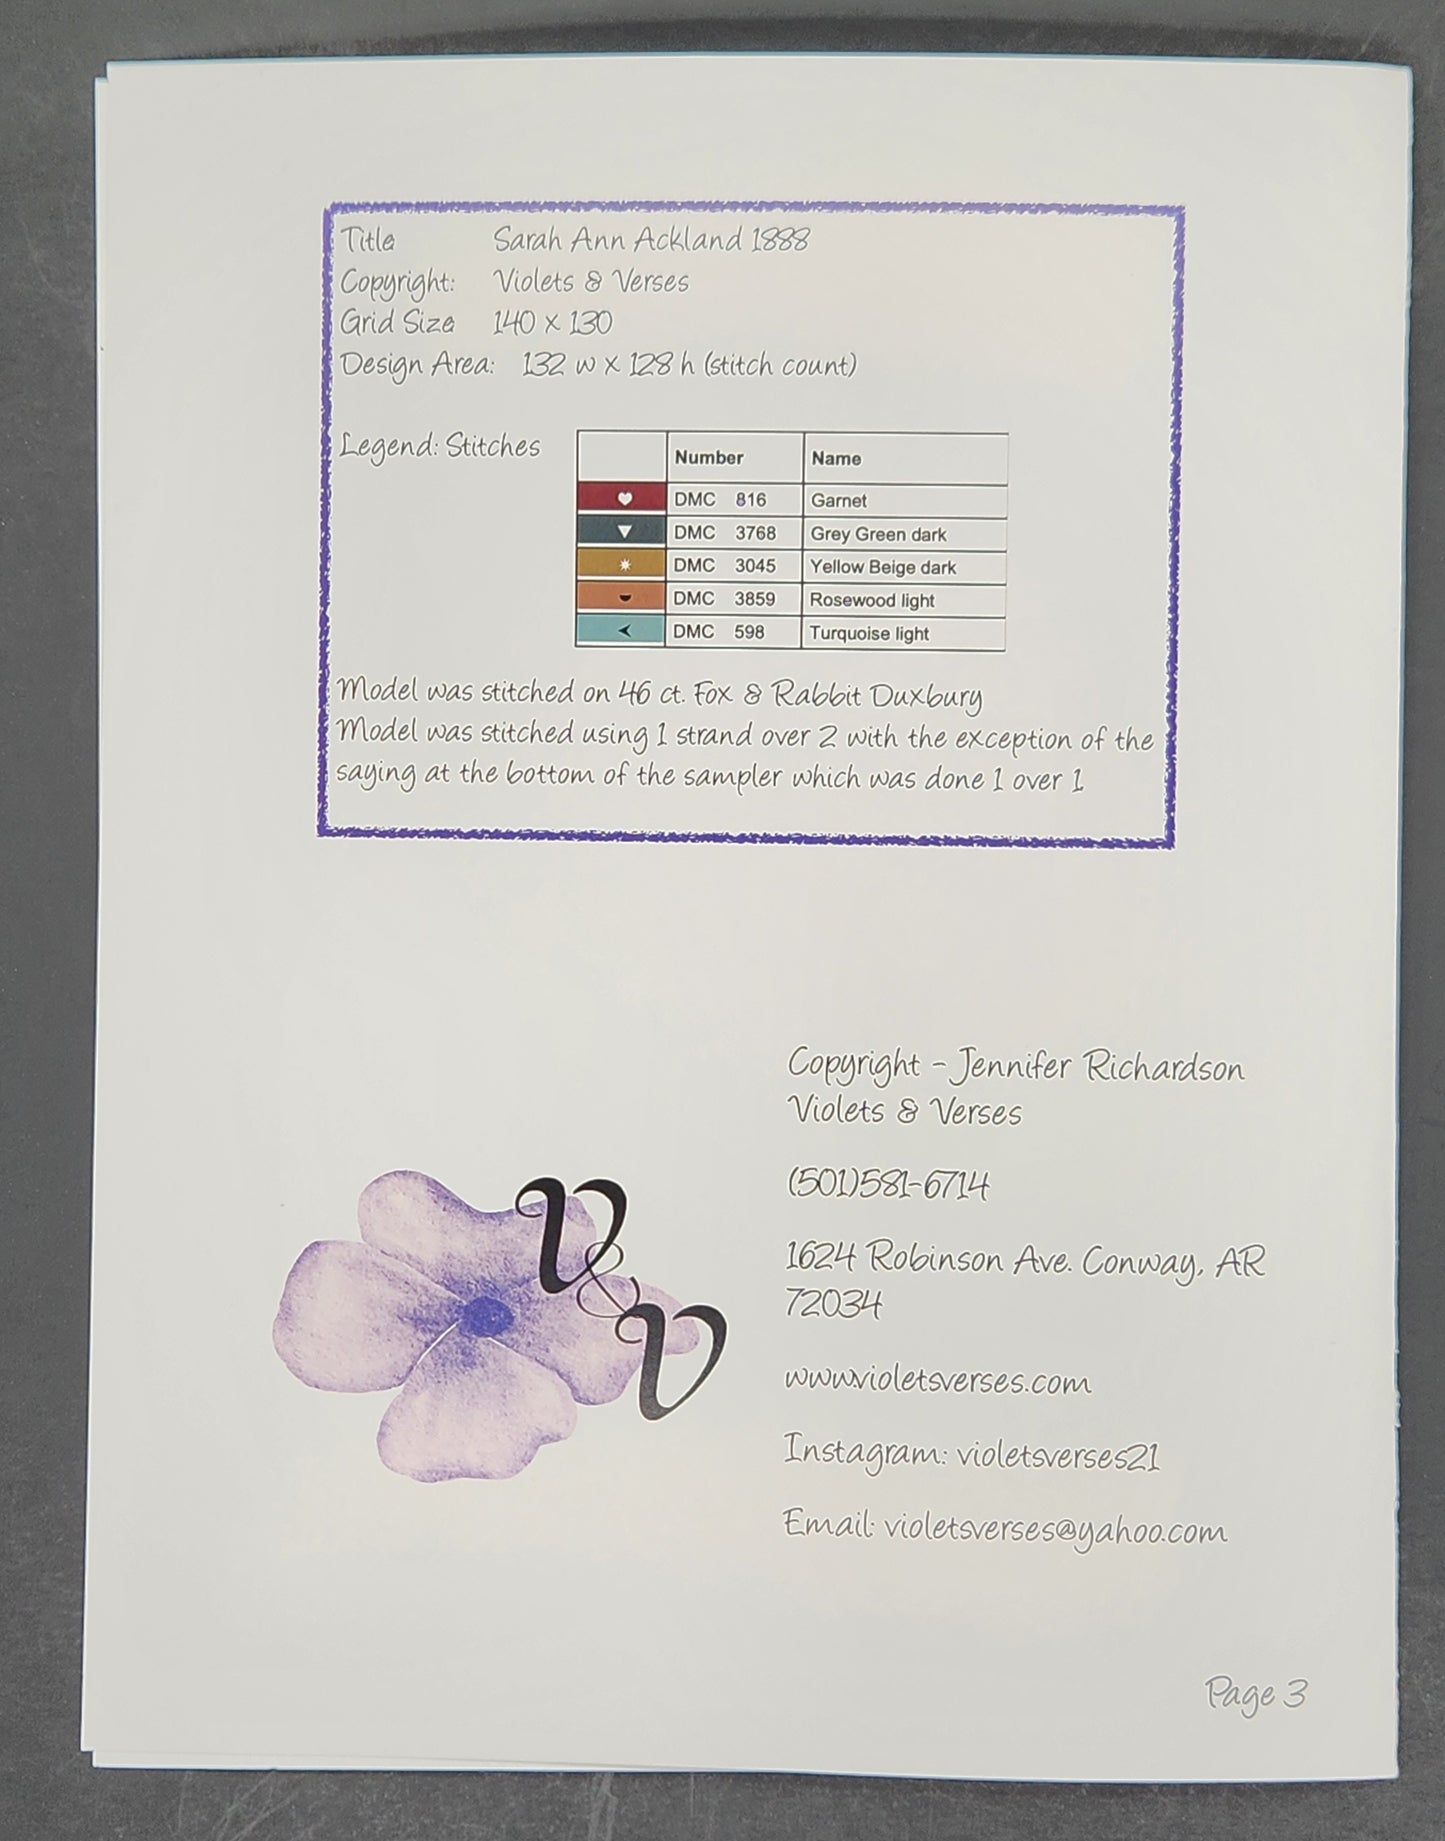 Title Sarah Ann Ackland 1888
Copyright: Violets & Verses
Grid Size 140 x 130
Design Area: 132 w x 128 h (stitch count)
Legend: Stitches
Number Name
DMC 816 Garnet
DMC 3768 Grey Green dark
DMC 3045 Yellow Beige dark
DMC 3859 Rosewood light
DMC 598 Turquoise light
Model was stitched on 46 ct. Fox & Rabbit Duxbury
Model was stitched using 1 strand over 2 with the exception of the
saying at the bottom of the sampler which was done 1 over 1
Copyright - Jennifer Richardson
Violets & Verses
(501)581-6714
1624 Robinson Ave. Conway, AR
72034
www.violetsverses.com
Instagram: violetsverses21
Email: violetsverses@yahoo.com
V&V
Page 3